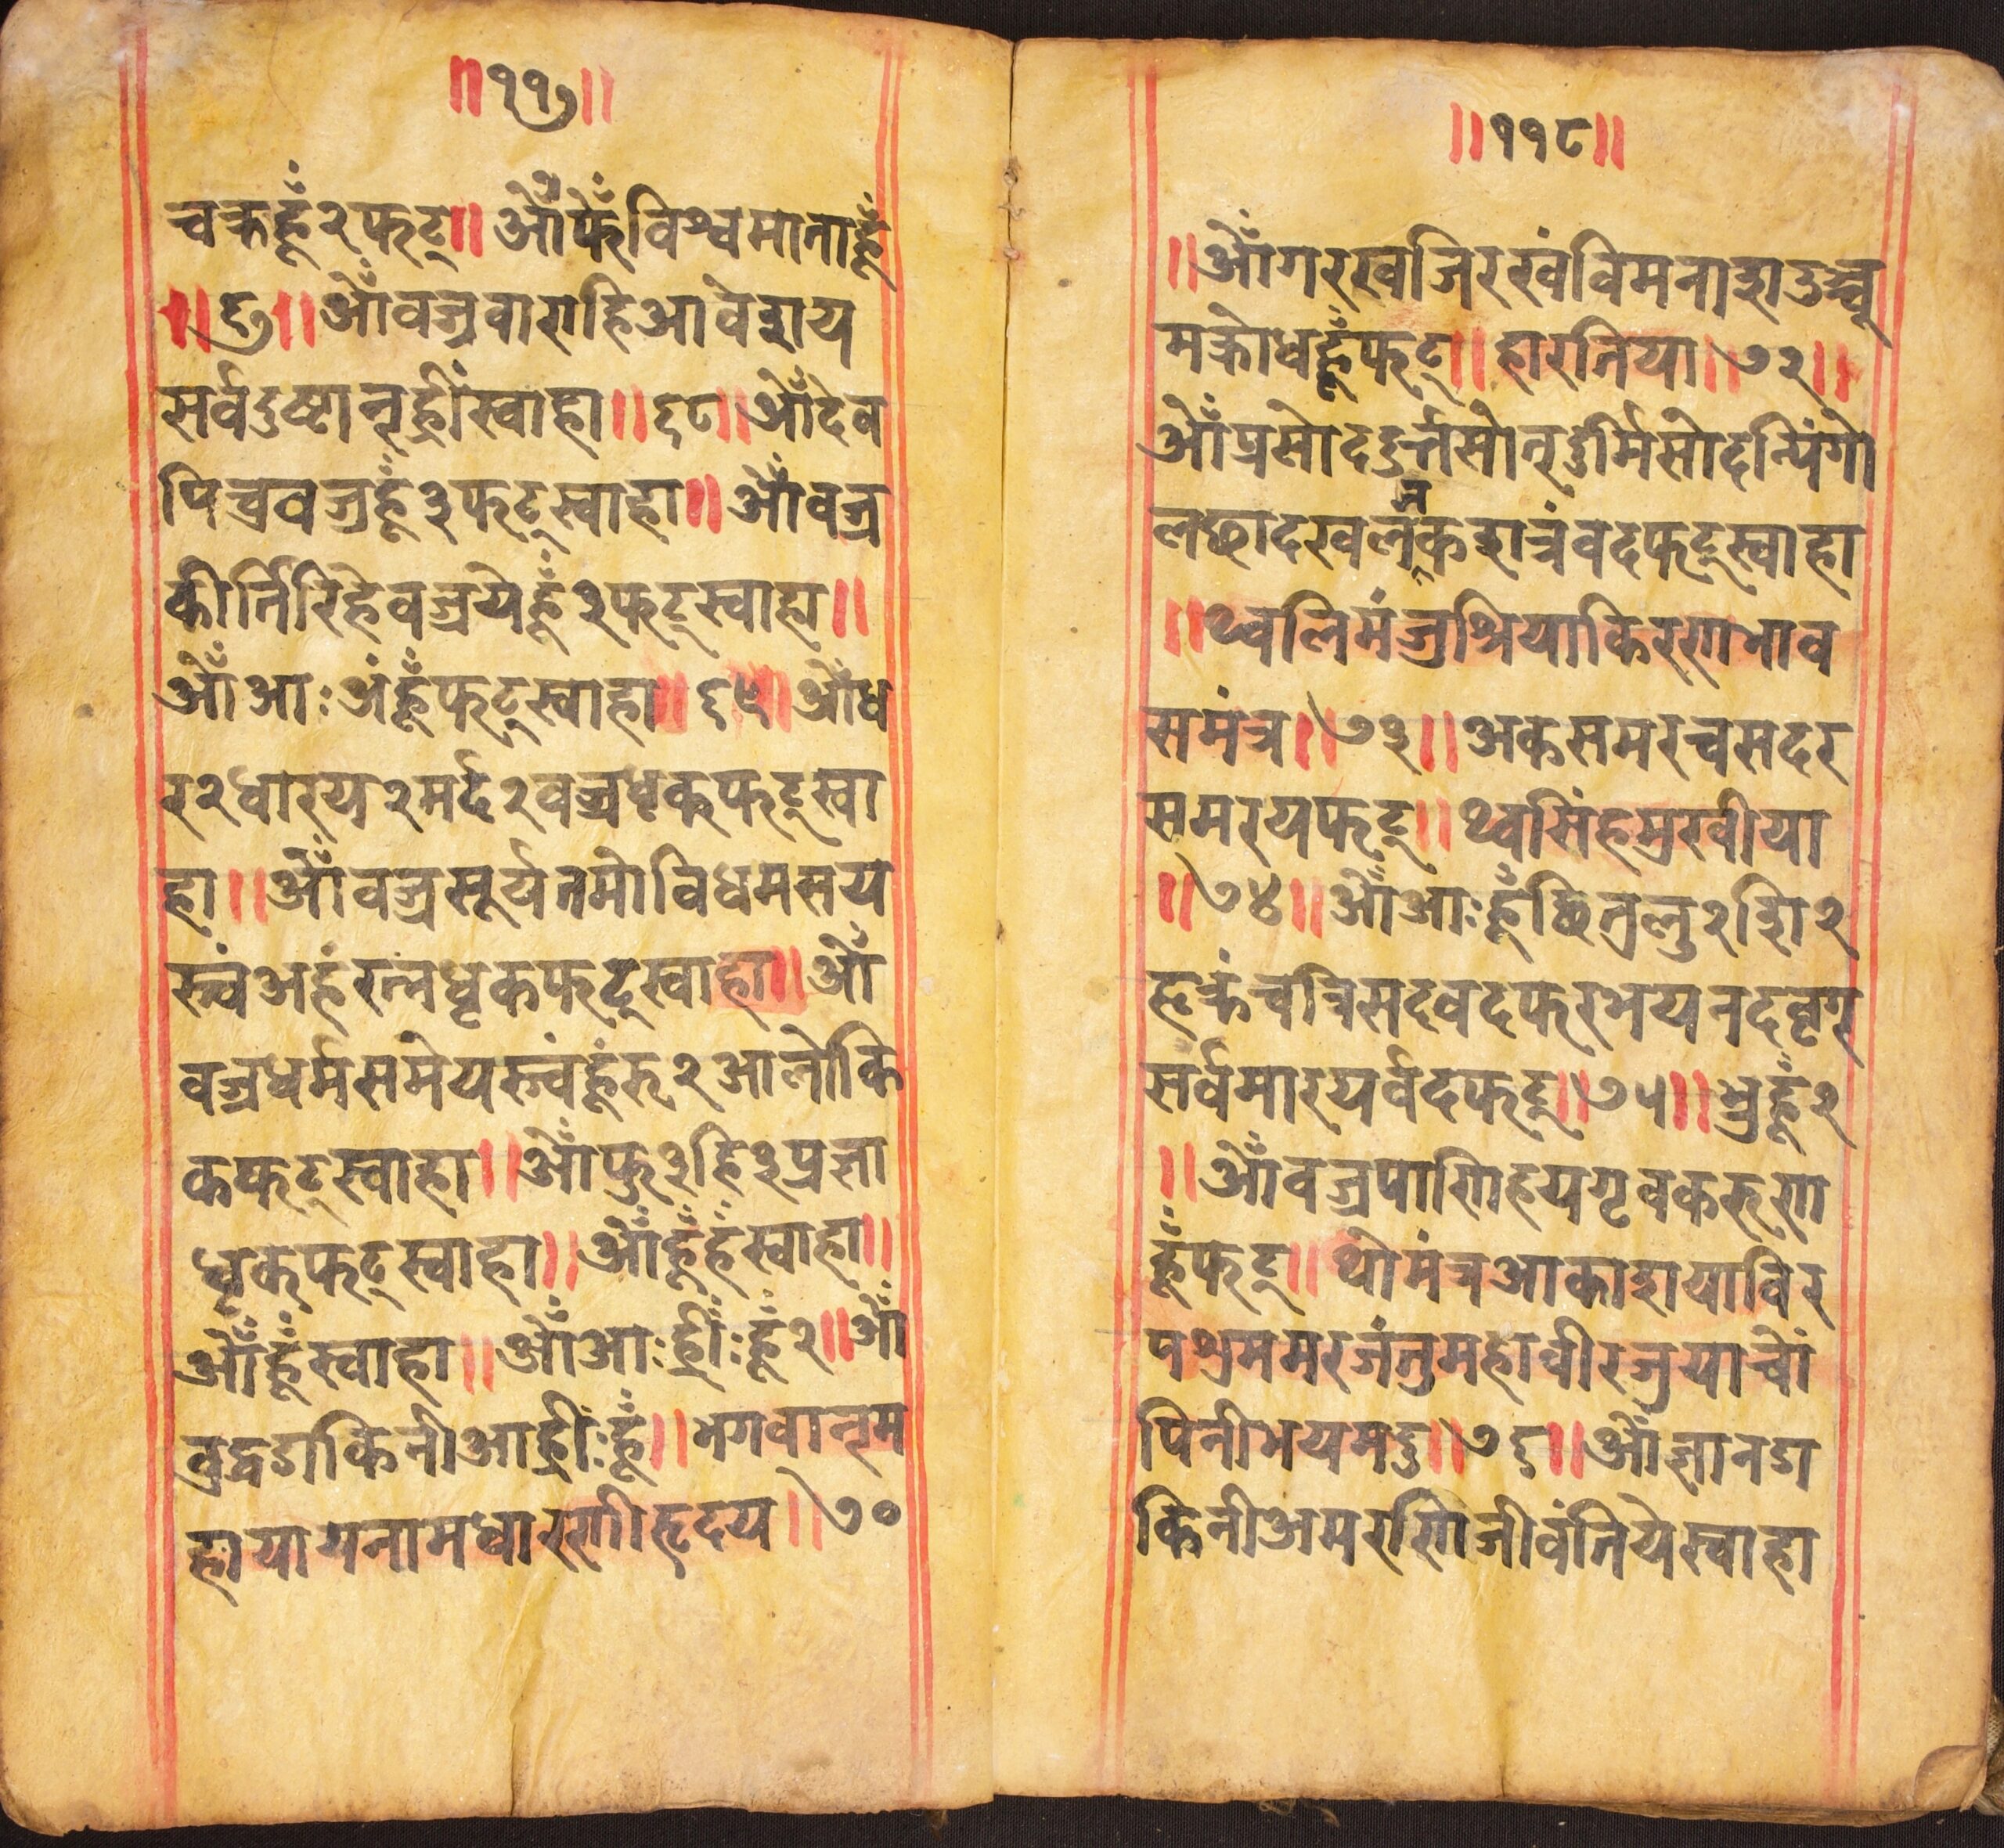 ॥११७॥
चक्रहूँ२फट्॥ओँफेँविश्वमाताहूँ
॥६७॥ओँवज्रवाराहिआवेशय
सर्वदुष्टान्ह्रीँस्वाहा॥६८॥ओँदेव
पिचुवज्रहूँ३फट्स्वाहा॥ओँवज्र
कीर्त्तिरिहेवज्रयेहूँ३फट्स्वाहा॥
ओँआःअंहूँफट्स्वाहा॥६९॥ओँध
र२धारय२मर्द२वज्रधृकफट्स्वा
हा॥ओँवज्रसूर्यतमोविधमसय
स्त्वंअहंरत्नधृकफट्स्वाहा॥ओँ
वज्रधर्मसमेयस्त्वंहूंरु२आलोकि
कफट्स्वाहा॥ओँफु३हि३प्रज्ञा
धृकफट्स्वाहा॥ओँहूँहँस्वाहा॥
ओँहूँस्वाहा॥ओँआःह्रीँःहूँ२॥ओँ
बुद्धडाकिनीआह्रीँःहूँ॥भगवान्म
हायायनामधारणीहृदय॥७०
॥११८॥
॥ओँगरखजिरखंविमनाशदुच्चू
मक्रोधहूँफट्॥हारतिया॥७२॥
ओँप्रसोददुर्न्तसोन्दुर्मिसोदन्पिंगो
लछादखलन्कशत्रंवदफट्स्वाहा
॥थ्वलिमंजुश्रियाकिरणभाव
समंत्र॥७३॥अकसमरचसदर
समरयफट्॥थ्वसिंहमुरवीया
॥७४॥ओँआःहूँछित्रलु२शि२
हृक्रंचत्रिसदवदफरभयनदवृग्
सर्वमारयर्वदफट्॥७५॥भ्रुहूँ२
॥ओँवज्रपाणिहयगृवकरुण
हूँफट्॥थोमंत्रआकाशयाविर
पश्रममरजंतुमहावीरजुयाचों
पिनीभयमदु॥७६॥ओँज्ञानडा
किनीअमरणिजीवंतियेस्वाहा